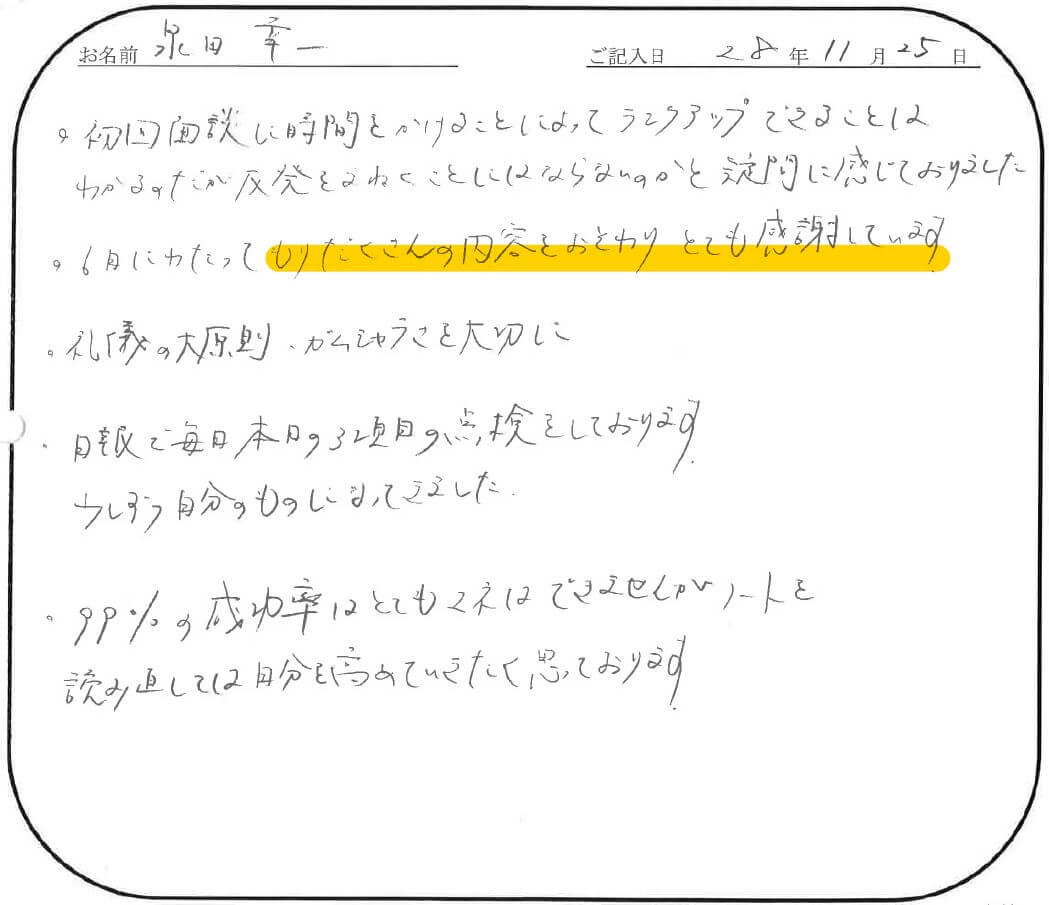 お名前 泉田 幸一 ご記入日 28年11月25日
。初回面談に時間をかけることによってランクアップできることは
わかるのだが反発をまねくことにはならないのかと疑問に感じておりました
。6月にわたってもりだくさんの内容をおそわりとても感謝しています。
。礼儀の大原則、ガムシャラさを大切に
・日報で毎日本日の32項目の点検をしております。
少しずつ自分のものになってきました.
・99%の成功率はとてもマネはできませんがノートを
読み直しては自分を高めていきたく思っております。